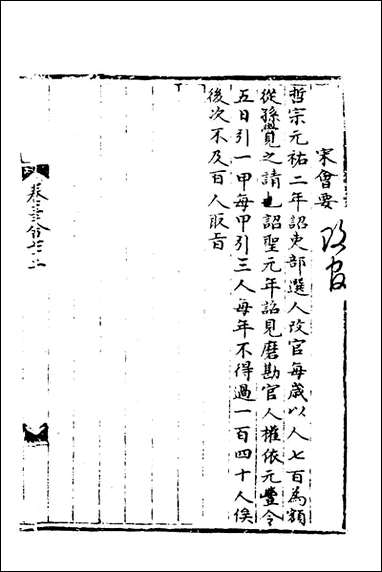 宋會要 改官
哲宗元祐二年詔吏部選人改官每歲以人七百為額
從孫覺之請也詔聖元年詔見磨勘官人權依元豐令
五日引一甲每甲引三人每年不得過一百四十人俟
後次不及百人取旨